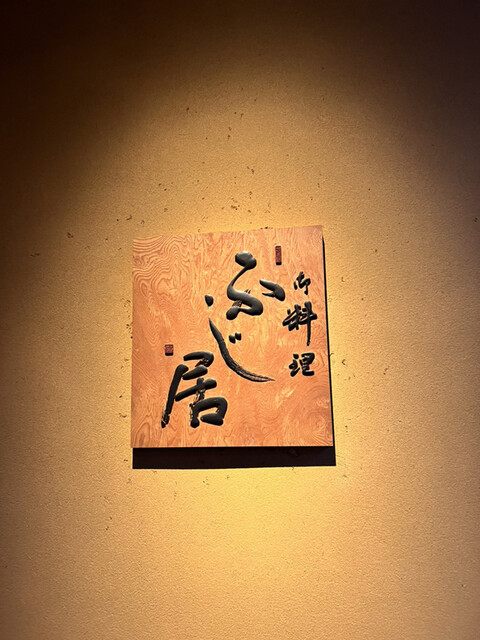 御料理
ふじ居